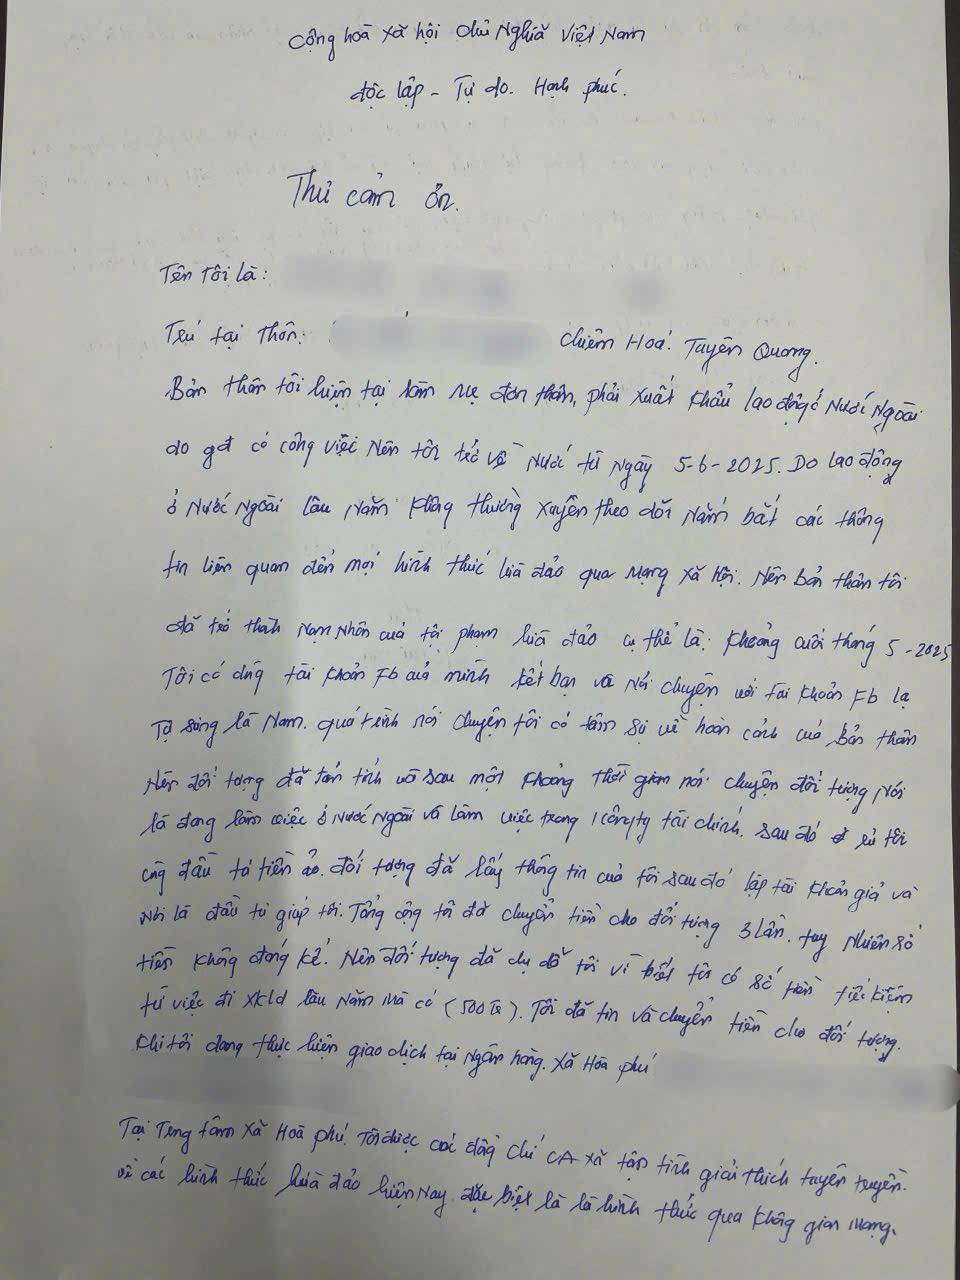 Cộng hoà xã hội chủ Nghĩa Việt Nam
độc lập - Tự do. Hạnh phúc.
Thư cảm ơn.
Tên tôi là:
Trú tại thôn: Chiêm Hoá. Tuyên Quang.
Bản thân tôi hiện tại làm mẹ đơn thân, phải xuất khẩu lao động ở Nước Ngoài
do gđ có công việc Nên tôi trở về Nước từ Ngày 5-6-2025. Do lao động
ở Nước Ngoài lâu Năm không thường xuyên theo dõi Nắm bắt các thông
tin liên quan đến mọi hình thức lừa đảo qua mạng xã hội. Nên bản thân tôi
đã trở thành Nạn Nhân của tội phạm lừa đảo cụ thể là: Khoảng cuối tháng 5-2025
Tôi có dùng tài khoản Fb của mình kết bạn và Nói chuyện với tài khoản Fb lạ
Tự xưng là Nam. quá trình nói chuyện tôi có tâm sự về hoàn cảnh của bản thân
Nên đối tượng đã tán tỉnh và sau một khoảng thời gian nói chuyện đối tượng Nói
là đang làm việc ở Nước Ngoài và làm việc trong 1 công ty tài chính. Sau đó rủ tôi
cùng đầu tư tiền ảo. đối tượng đã lấy thông tin của tôi sau đó lập tài khoản giả và
Nói là đầu tư giúp tôi. Tổng cộng tôi đã chuyển tiền cho đối tượng 3 lần. tuy Nhiên số
tiền không đáng kể. Nên đối tượng đã dụ dỗ tôi vì biết tôi có số tiền tiết kiệm
từ việc đi xklđ lâu Năm mà có (500Tr). Tôi đã tin và chuyển tiền cho đối tượng.
Khi tôi đang thực hiện giao dịch tại Ngân hàng. xã Hoà phú
Tại Trung tâm xã Hoà phú. Tôi được các đồng chí CA xã tận tình giải thích tuyên truyền.
về các hình thức lừa đảo hiện Nay. đặc biệt là là hình thức qua không gian mạng.